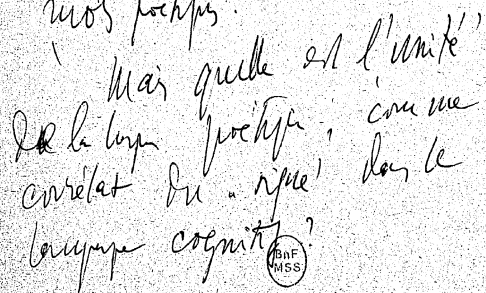 mots poétiques.
Mais quelle est l'"unité"
de la langue poétique, comme
corrélat du "signe" dans le
langage cognitif ?
BnF
MSS